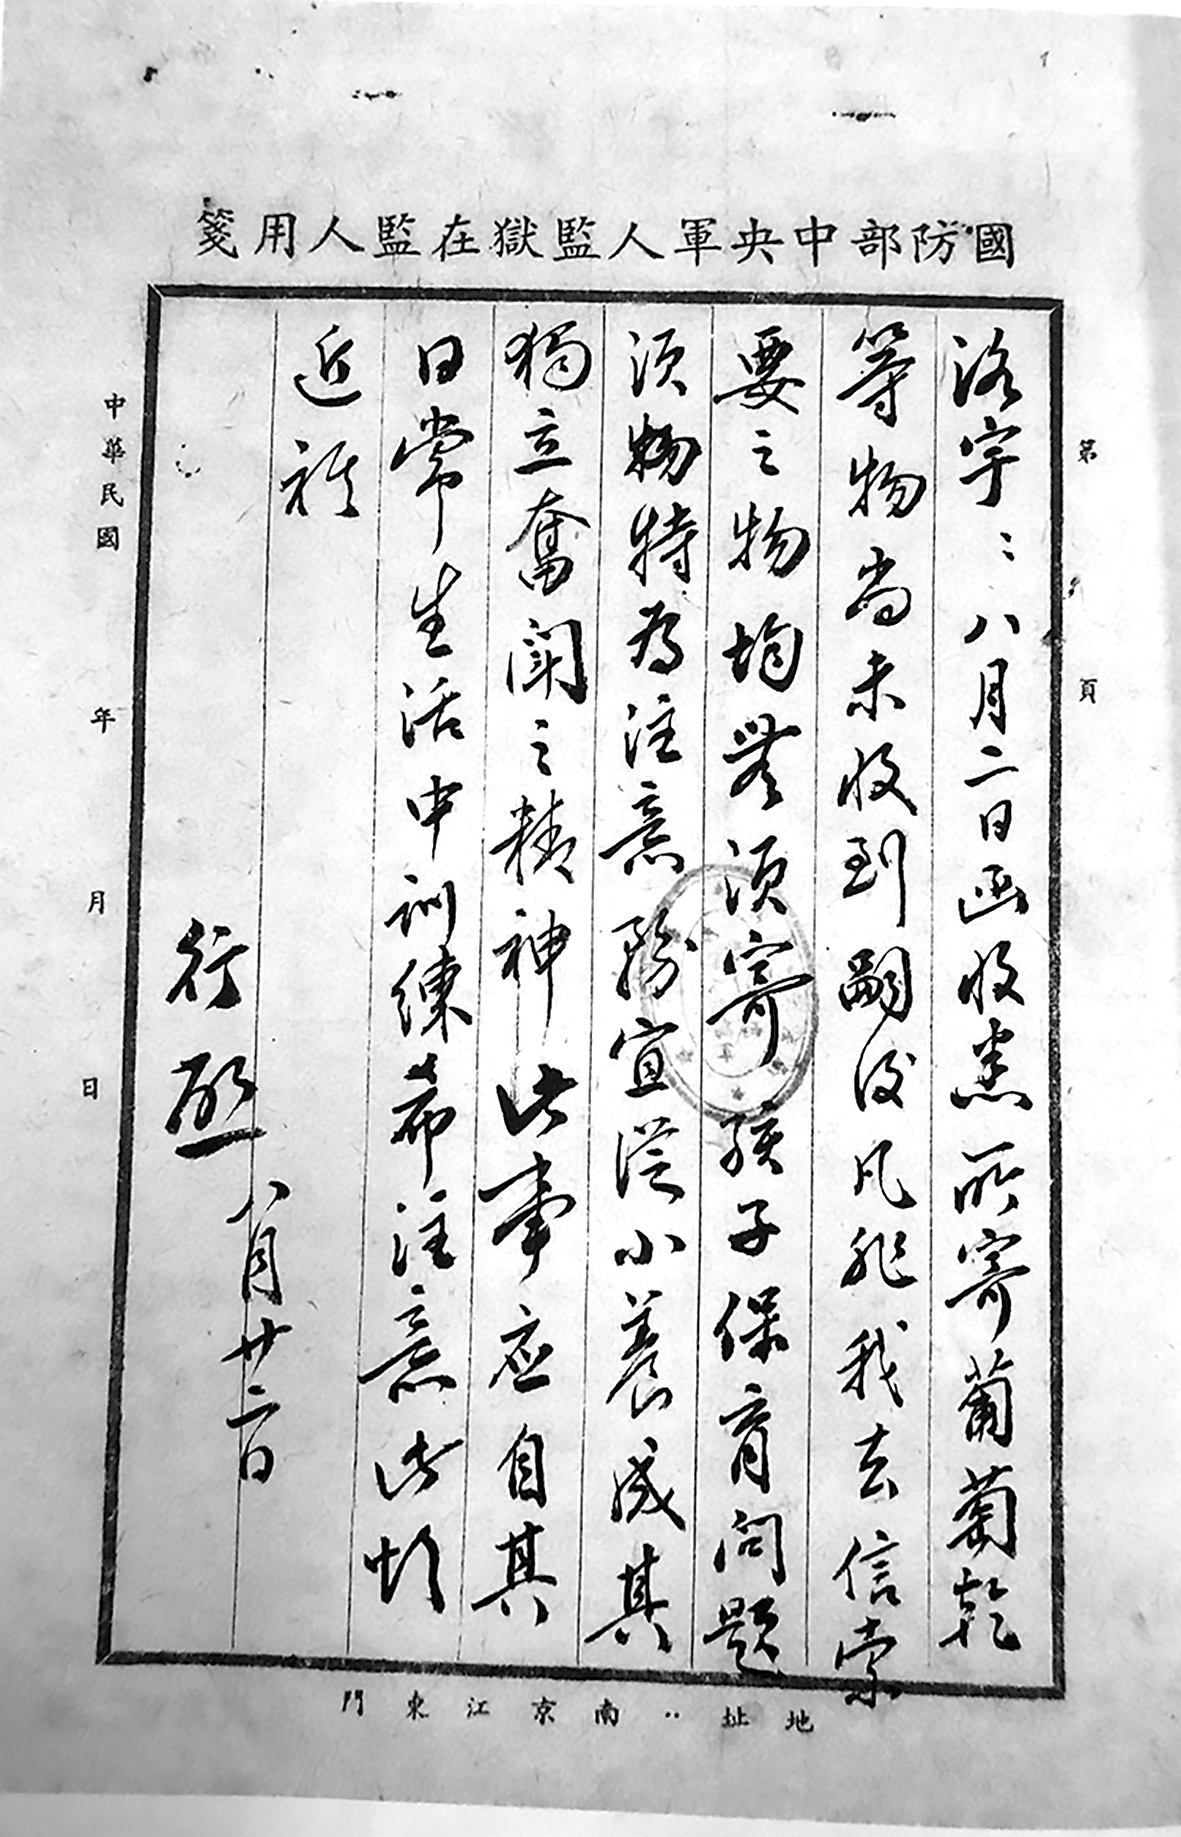 國防部中央軍人監獄在監人用箋
第 頁
洛宇：八月二日函收悉所寄葡萄乾
等物尚未收到嗣後凡非我去信索
要之物均無須寄孩子保育問題
須物特为注意務宜從小養成其
獨立奮鬥之精神此事应自其
日常生活中訓練希注意此頌
近祺
行 八月廿二日
中華民國 年 月 日
地址：南京江東門